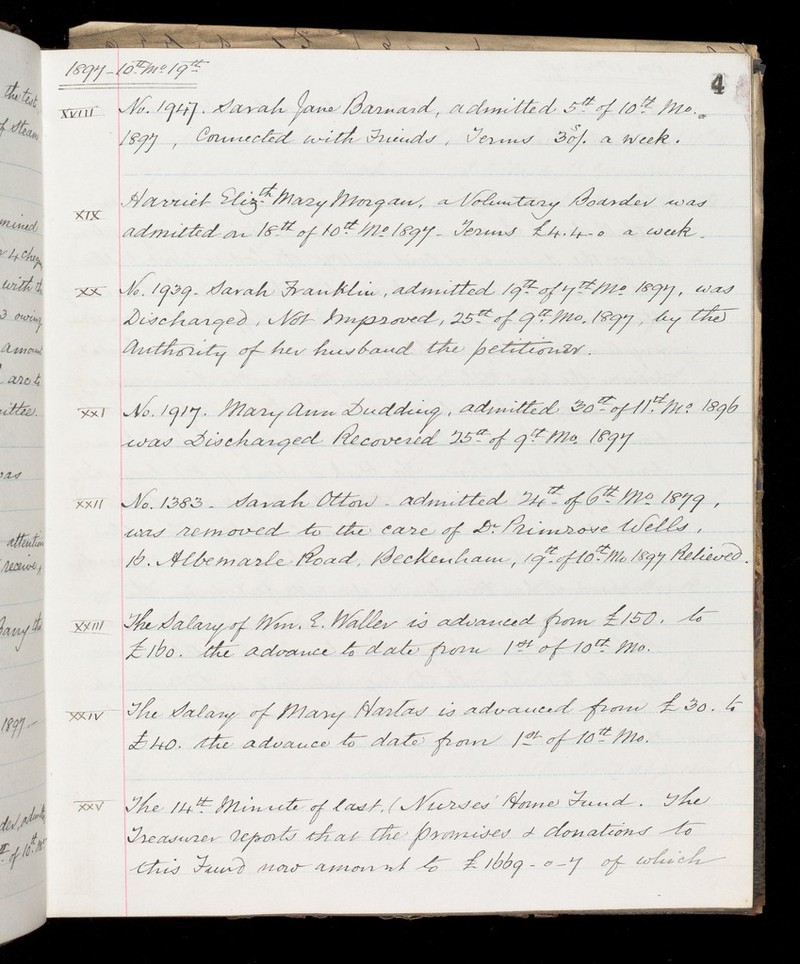 1897 - 10th Mo 19th
4
XVIII No. 1947. Sarah Jane Barnard, admitted 5th of 10th Mo.
1897, Connected with Friends, Terms 30s/. a week.
XIX Harriet Elizth Mary Morgan, a Voluntary Boarder was
admitted on 18th of 10th Mo 1897 - Terms £4.4-0 a week.
XX No. 1939. Sarah Franklin, admitted 19th of 7th Mo 1897, was
Discharged, Not Improved, 25th of 9th Mo. 1897, by the
authority of her husband the petitioner.
XXI No. 1917. Mary Ann Dudding, admitted 30th of 11th Mo 1896
was Discharged Recovered 25th of 9th Mo 1897
XXII No. 1383 - Sarah Ottow - admitted 24th of 6th Mo 1879,
was removed to the care of Dr Primrose Wells,
Albemarle Road, Beckenham, 19th of 10th Mo 1897 Relieved.
XXIII The Salary of Wm. E. Waller is advanced from £150. to
£160. the advance to date from 1st of 10th Mo.
XXIV The Salary of Mary Hartas is advanced from £30. to
£40. the advance to date from 1st of 10th Mo.
XXV The 14th Minute of last, (Nurses' Home Fund. The
Treasurer reports that the promises & donations to
this Fund now amount to £1669-0-7 of which